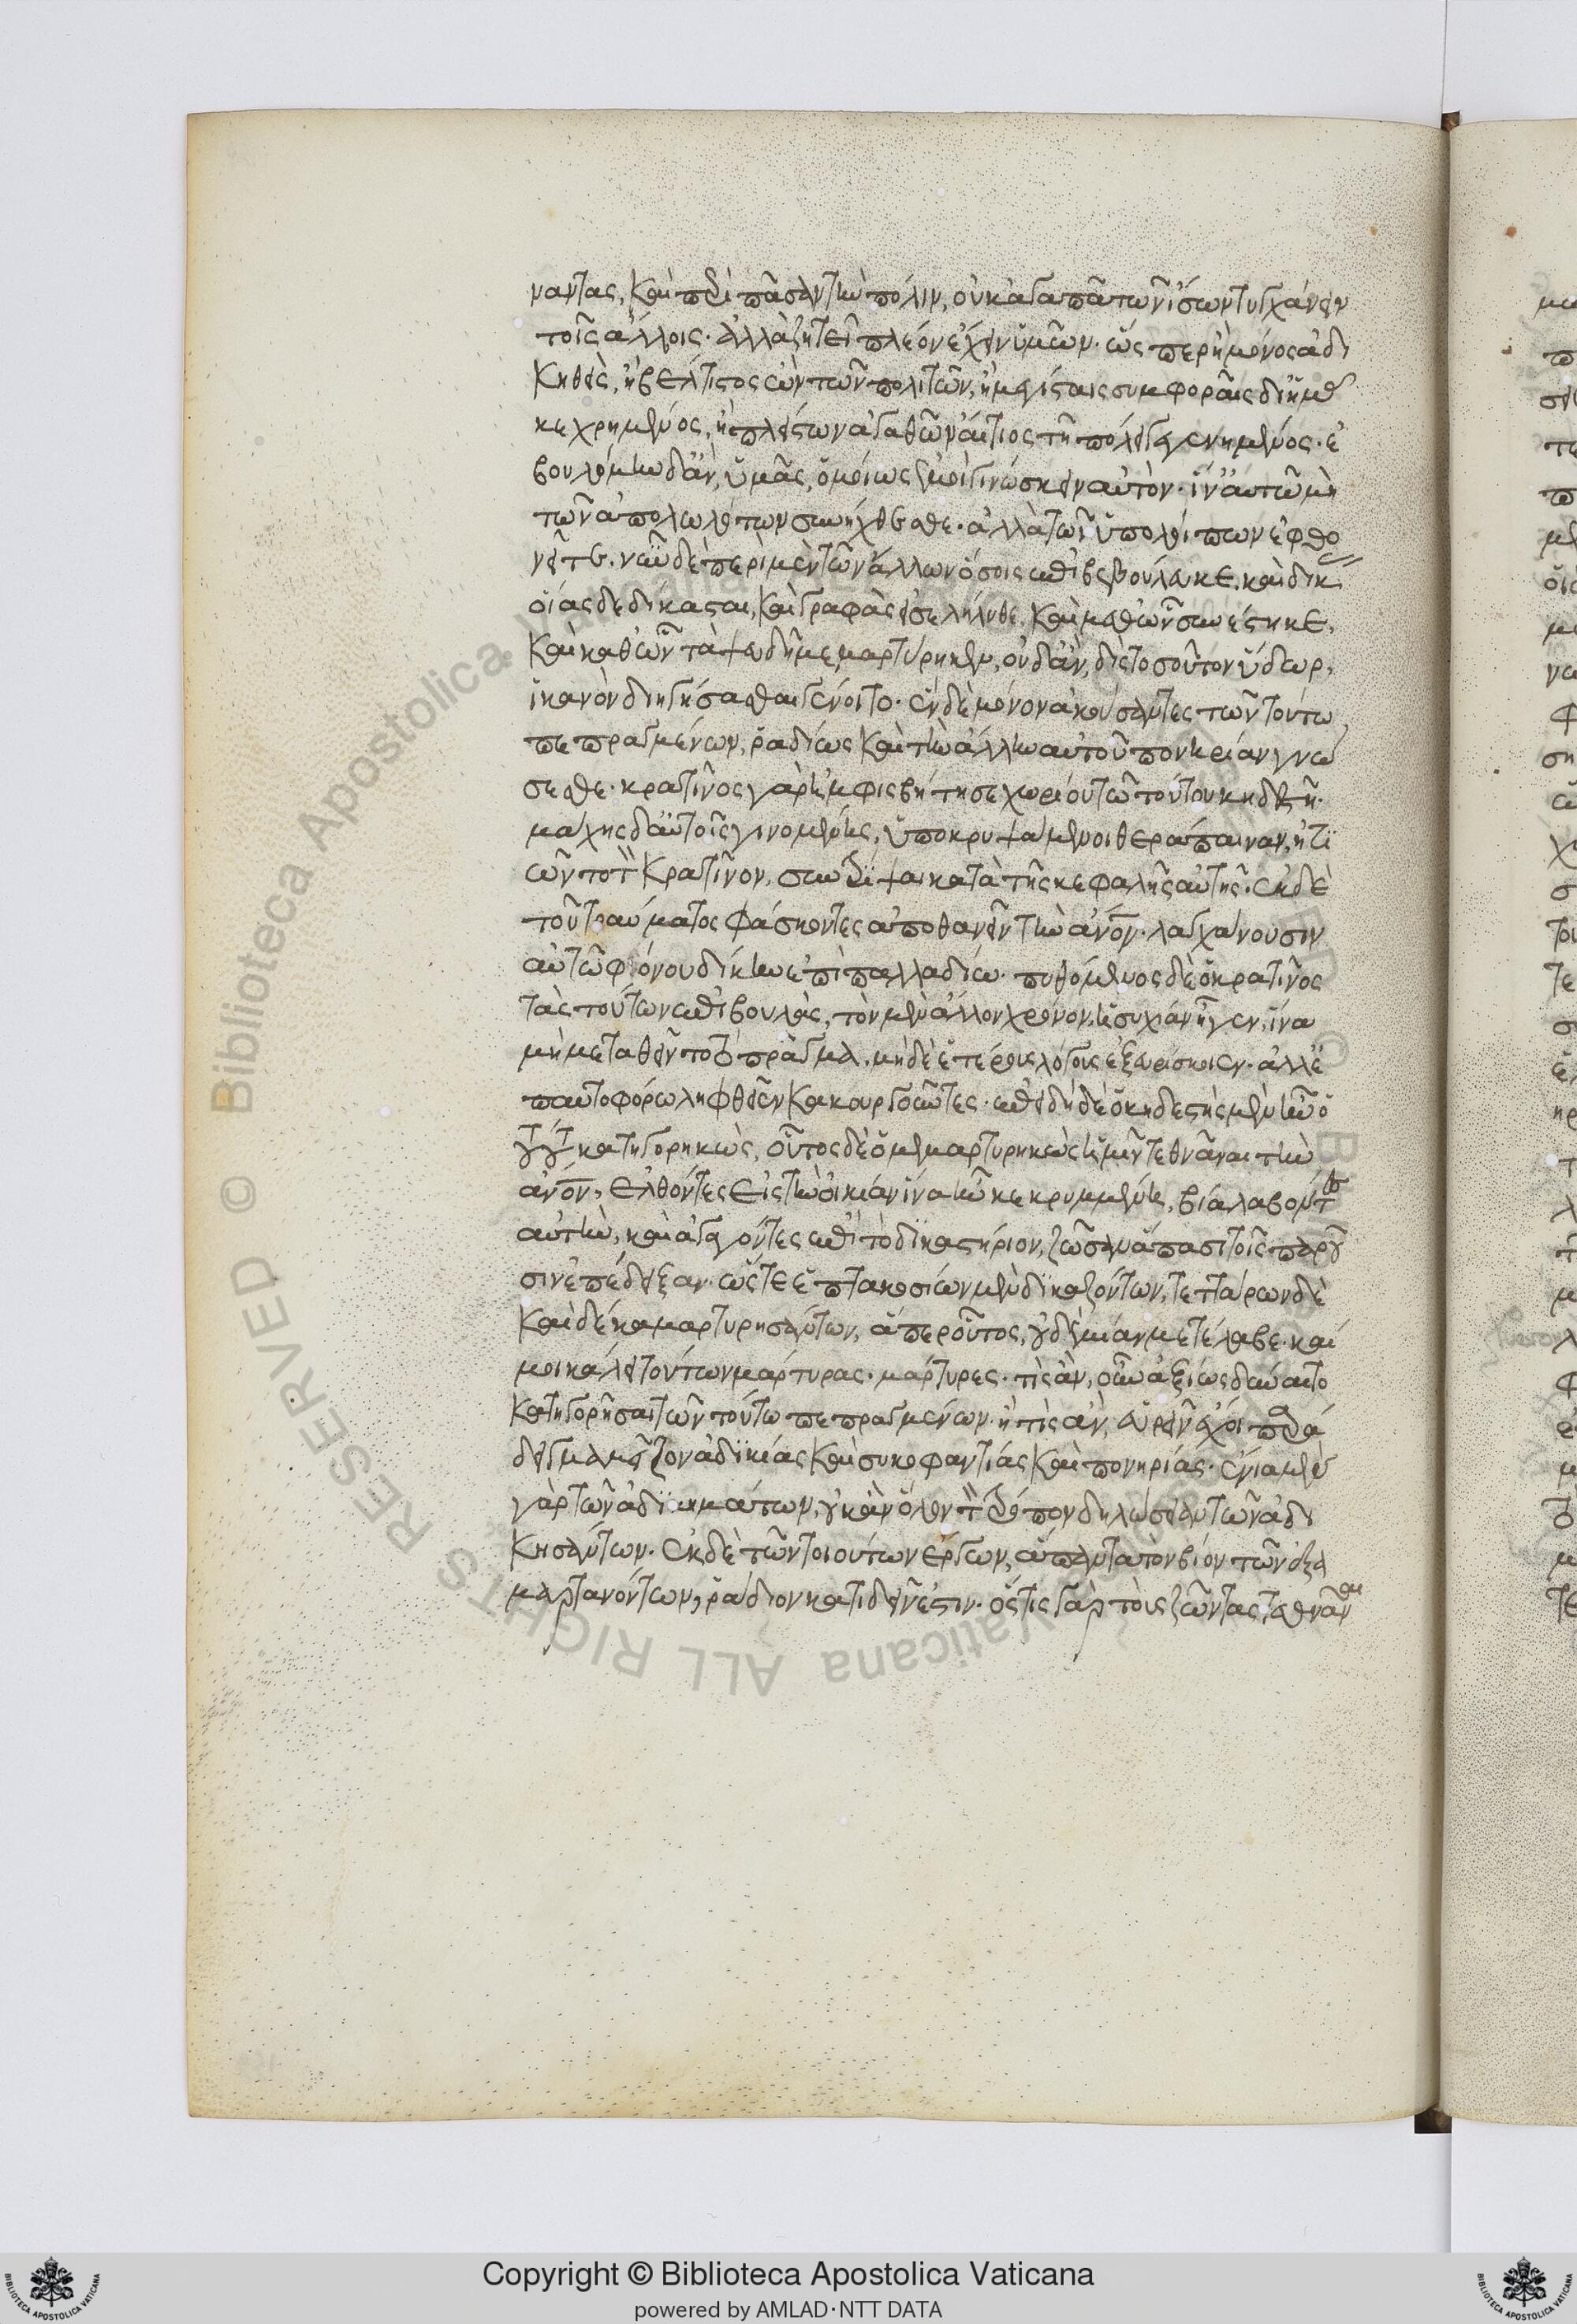 ναντας, καὶ περὶ πᾶσαν τὴν πόλιν, οὐκ ἀγαπᾶ τῶν ἴσων τυγχάνειν
τοῖς ἄλλοις· ἀλλὰ ζητεῖ πλέον ἔχειν ὑμῶν· ὥσπερ ἢ μόνος ἀδι
κηθεὶς, ἢ βέλτιστος ὢν τῶν πολιτῶν, ἢ μεγίσταις συμφοραῖς δι' ἡμᾶς
κεχρημένος, ἢ πλείστων ἀγαθῶν αἴτιος τῆ πόλει γεγενημένος· ἐ
βουλόμην δ' ἂν, ὑμᾶς, ὁμοίως ἐμοὶ γινώσκειν αὐτὸν· ἵν' αὐτῶ μὴ
τῶν ἀπολωλότων συνήχθεσθε· ἀλλὰ τῶν ὑπολοίπων ἐφθο
νεῖτε. νῦν δὲ περὶ μὲν τῶν ἄλλων ὅσοις ἐπιβεβούλευκε, καὶ δίκας
οἵας δεδίκασται, καὶ γραφὰς εἰσελήλυθε, καὶ μεθ' ὧν συνέστηκε,
καὶ καθ' ὧν τὰ ψευδῆ μεμαρτύρηκεν, οὐδ' ἂν, δὶς τοσοῦτον ὕδωρ,
ἱκανὸν διηγήσασθαι γένοιτο· ἓν δὲ μόνον ἀκούσαντες τῶν τούτω
πεπραγμένων, ῥαδίως καὶ τὴν ἄλλην αὐτοῦ πονηρίαν γνώ
σεσθε· κρατῖνος γὰρ ἠμφισβήτησε χωρίου τῶ τούτου κηδεστῆ·
μάχης δ' αὐτοῖς γινομένης, ὑποκρυψάμενοι θεράπαιναν, ἠτι
ῶντο τὸν Κρατῖνον, συντρῖψαι κατὰ τῆς κεφαλῆς αὐτῆς· ἐκ δὲ
τοῦ τραύματος φάσκοντες ἀποθανεῖν τὴν ἄνον· λαγχάνουσιν
αὐτῶ φόνου δίκην ἐπὶ παλλαδίω· πυθόμενος δὲ ὁ κρατῖνος
τὰς τούτων ἐπιβουλὰς, τὸν μὲν ἄλλον χρόνον, ἡσυχίαν ἦγεν, ἵνα
μὴ μεταθεῖντο τὸ πρᾶγμα, μηδὲ ἑτέρους λόγους ἐξευρίσκοιεν· ἀλλ' ἐ
παυτοφόρω ληφθεῖεν κακουργοῦντες· ἐπειδὴ δὲ ὁ κηδεστὴς μὲν ἦν ὁ
τούτου κατηγορηκὼς, οὗτος δὲ ὁ μεμαρτυρηκὼς ἦ μὴν τεθνάναι τὴν
ἄνον, ἐλθόντες εἰς τὴν οἰκίαν ἵνα ἦν κεκρυμμένη, βία λαβόντες
αὐτὴν, καὶ ἀγαγόντες ἐπὶ τὸ δικαστήριον, ζῶσαν ἅπασι τοῖς παροῦ
σιν ἐπέδειξαν· ὥστε ἑπτακοσίων μὲν δικαζόντων, τεττάρων δὲ
καὶ δέκα μαρτυρησάντων, ἅπερ οὗτος, οὐδεμίαν μετέλαβε· καί
μοι κάλει τούτων μάρτυρας· μάρτυρες· τίς ἂν, οὖν ἀξίως δύναιτο
κατηγορῆσαι τῶν τούτω πεπραγμένων· ἢ τίς ἂν, εὑρεῖν ἔχοι παρά
δειγμα μεῖζον ἀδικίας καὶ συκοφαντίας καὶ πονηρίας· ἔνια μὲν
γὰρ τῶν ἀδικημάτων, οὐκ ἂν ὅλον τὸν τρόπον δηλώσειαν τῶν ἀδι
κησάντων· ἐκ δὲ τῶν τοιούτων ἔργων, ἅπαντα τὸν βίον τῶν ἐξα
μαρτανόντων, ῥάδιον κατιδεῖν ἐστιν· ὅστις γὰρ τοὺς ζῶντας τεθνάναι
Copyright © Biblioteca Apostolica Vaticana
powered by AMLAD·NTT DATA